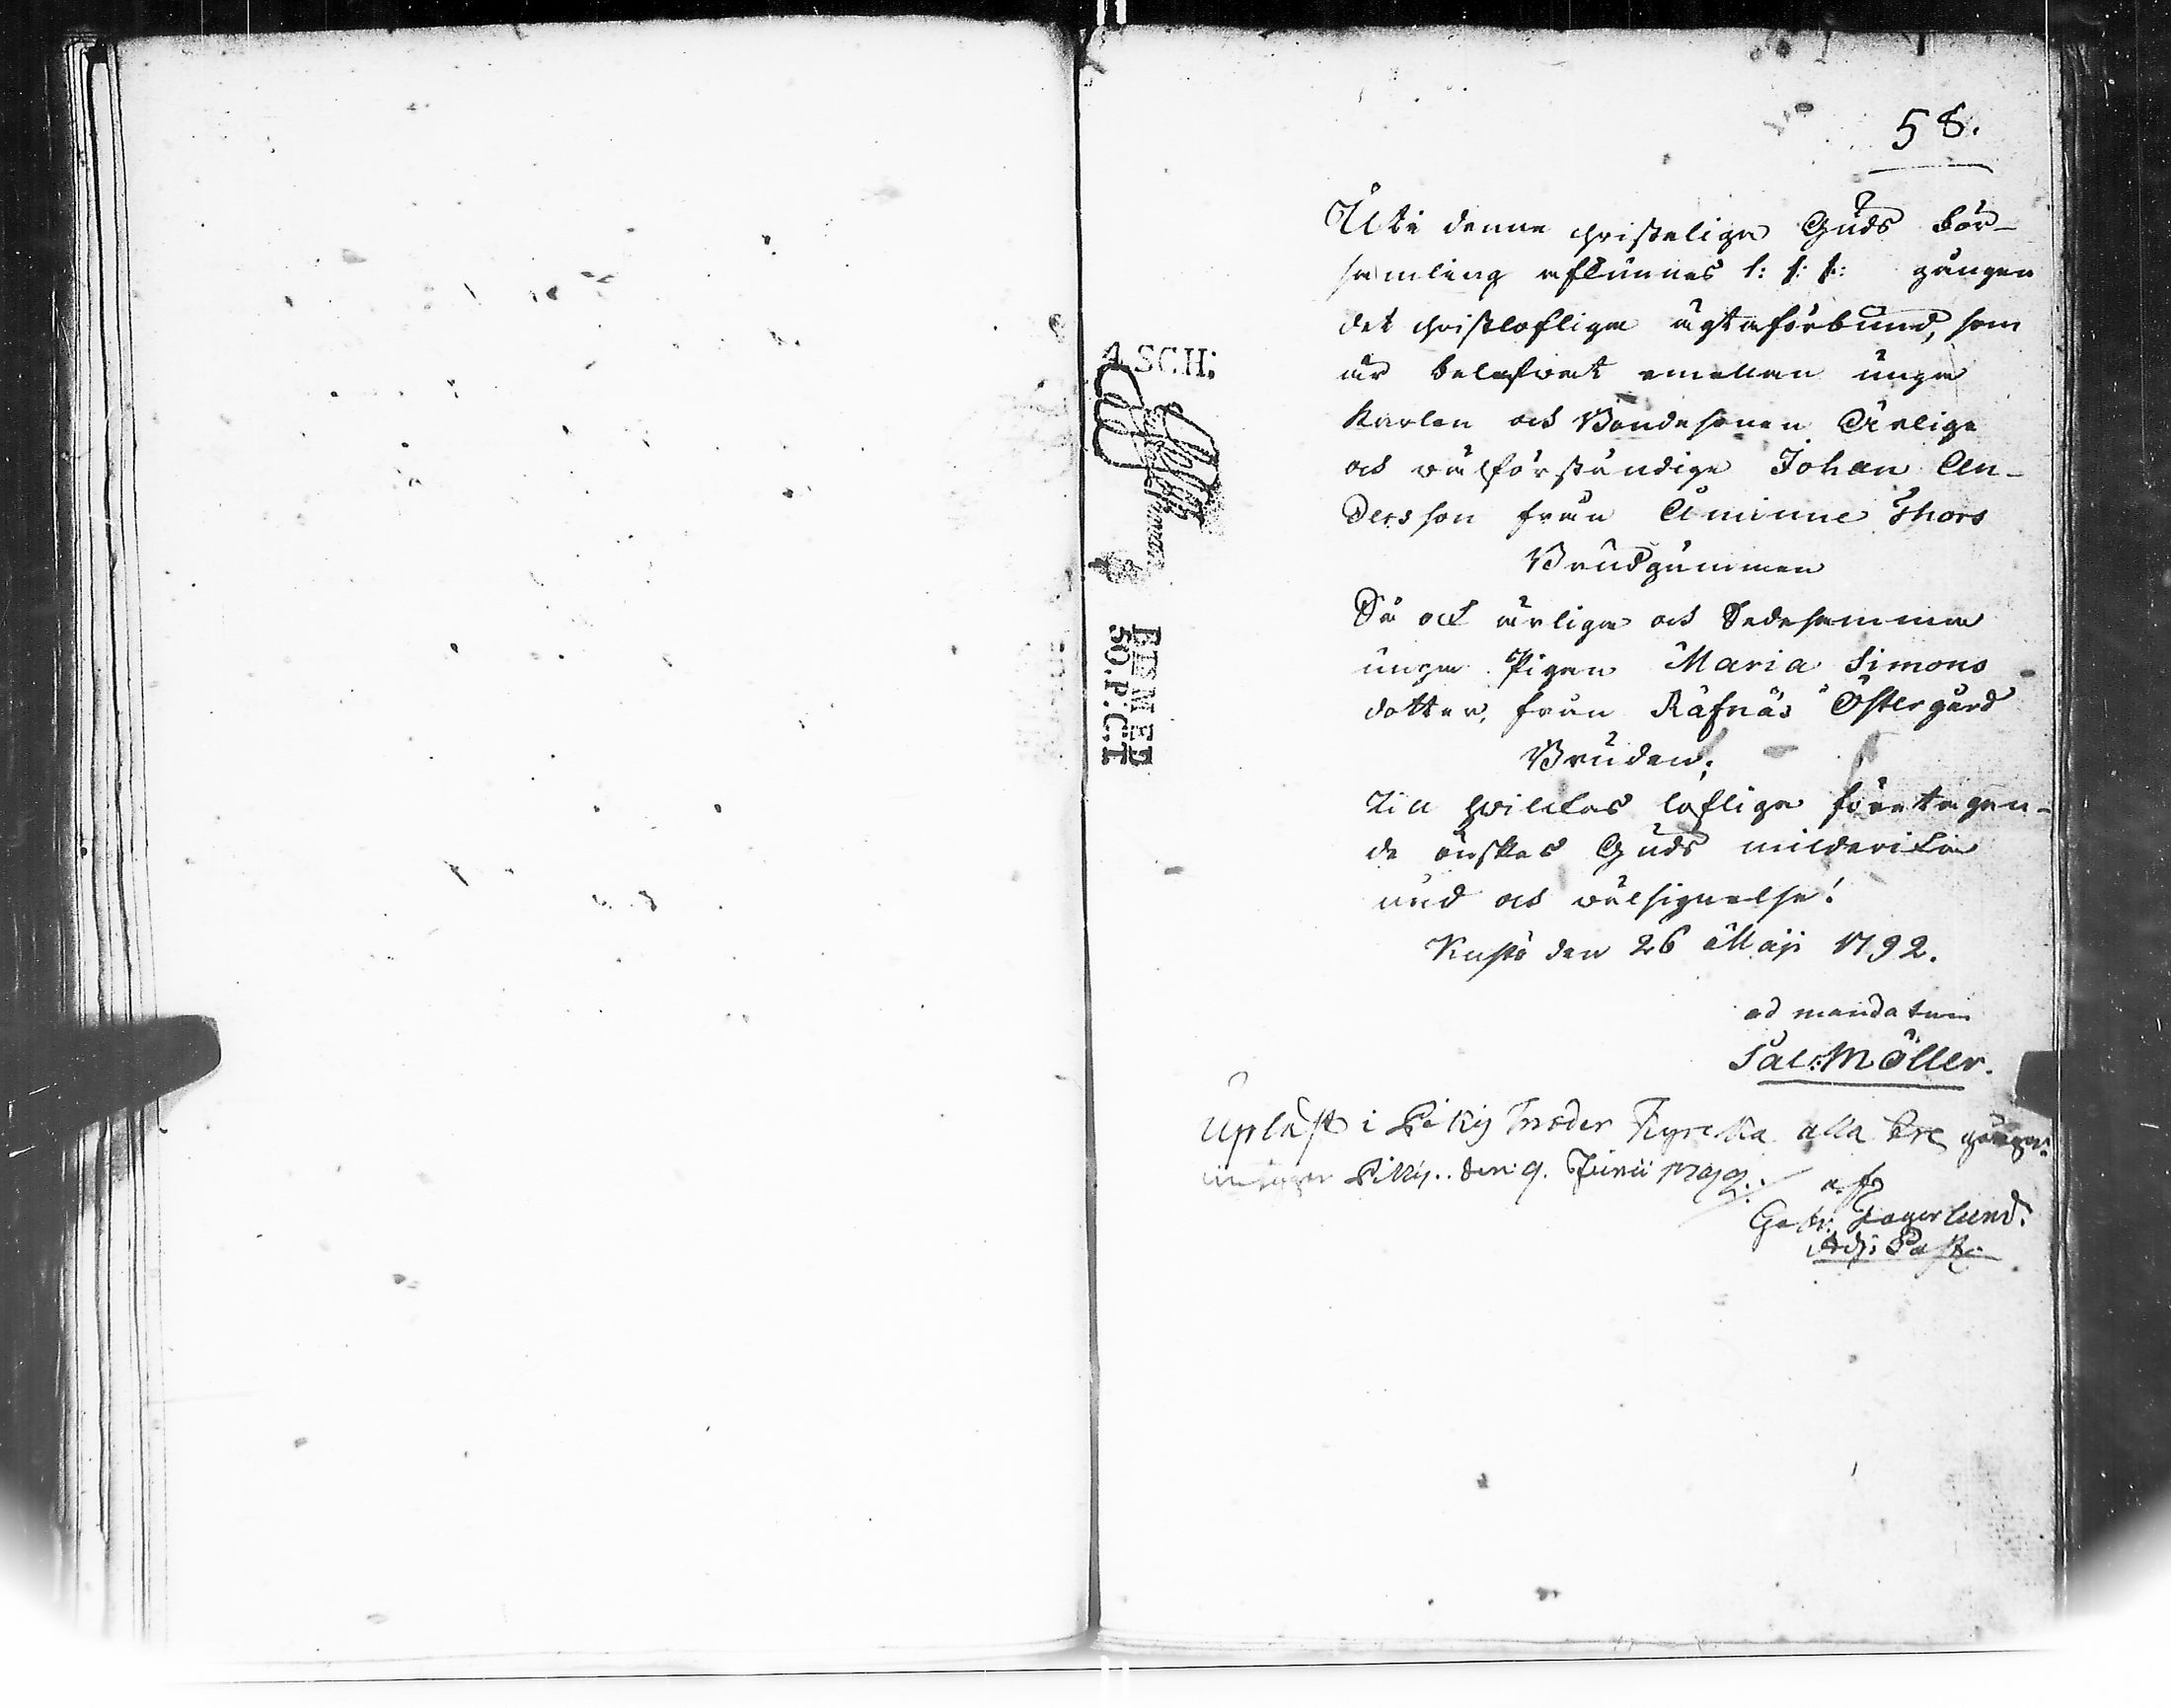 58.
Uti denne christeliga Guds för-
samling aflünnes 1: 1: 1: gången
det christlofliga ägtaförbund, som
är belefwat emellan unga
Karlen och Bondesonen Ärlige
och wälförståndige Johan An-
dersson från Åminne Thors
Brudgummen
Så ock ärliga och Sedesamma
unga Pigan Maria Simons
dotter, från Räfnäs Östergård
Bruden;
Till hwilckas lofliga företagan-
de önskas Guds milderika
nåd och wälsignelse!
Kustö den 26 Maji 1792.
ad mandatum
Sal: Möller.
Upläst i Pikis Moder Kyrcka alla tre gångor
Pikis.. den 9. Junii 1792. af
Gabr. Fagerlund.
Adj: Past:
A.SCH:
BESMED
SO.P.CT